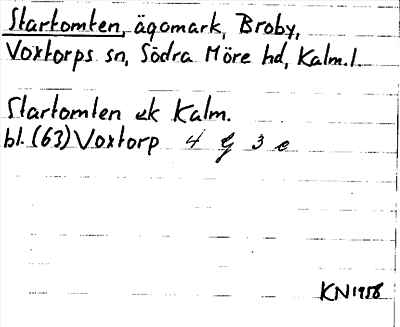 Startomten, ägomark, Broby,
Voxtorps sn, Södra Möre hd, Kalm.l.
Startomten ek Kalm.
bl. (63) Voxtorp 4 G 3 e
KN1958